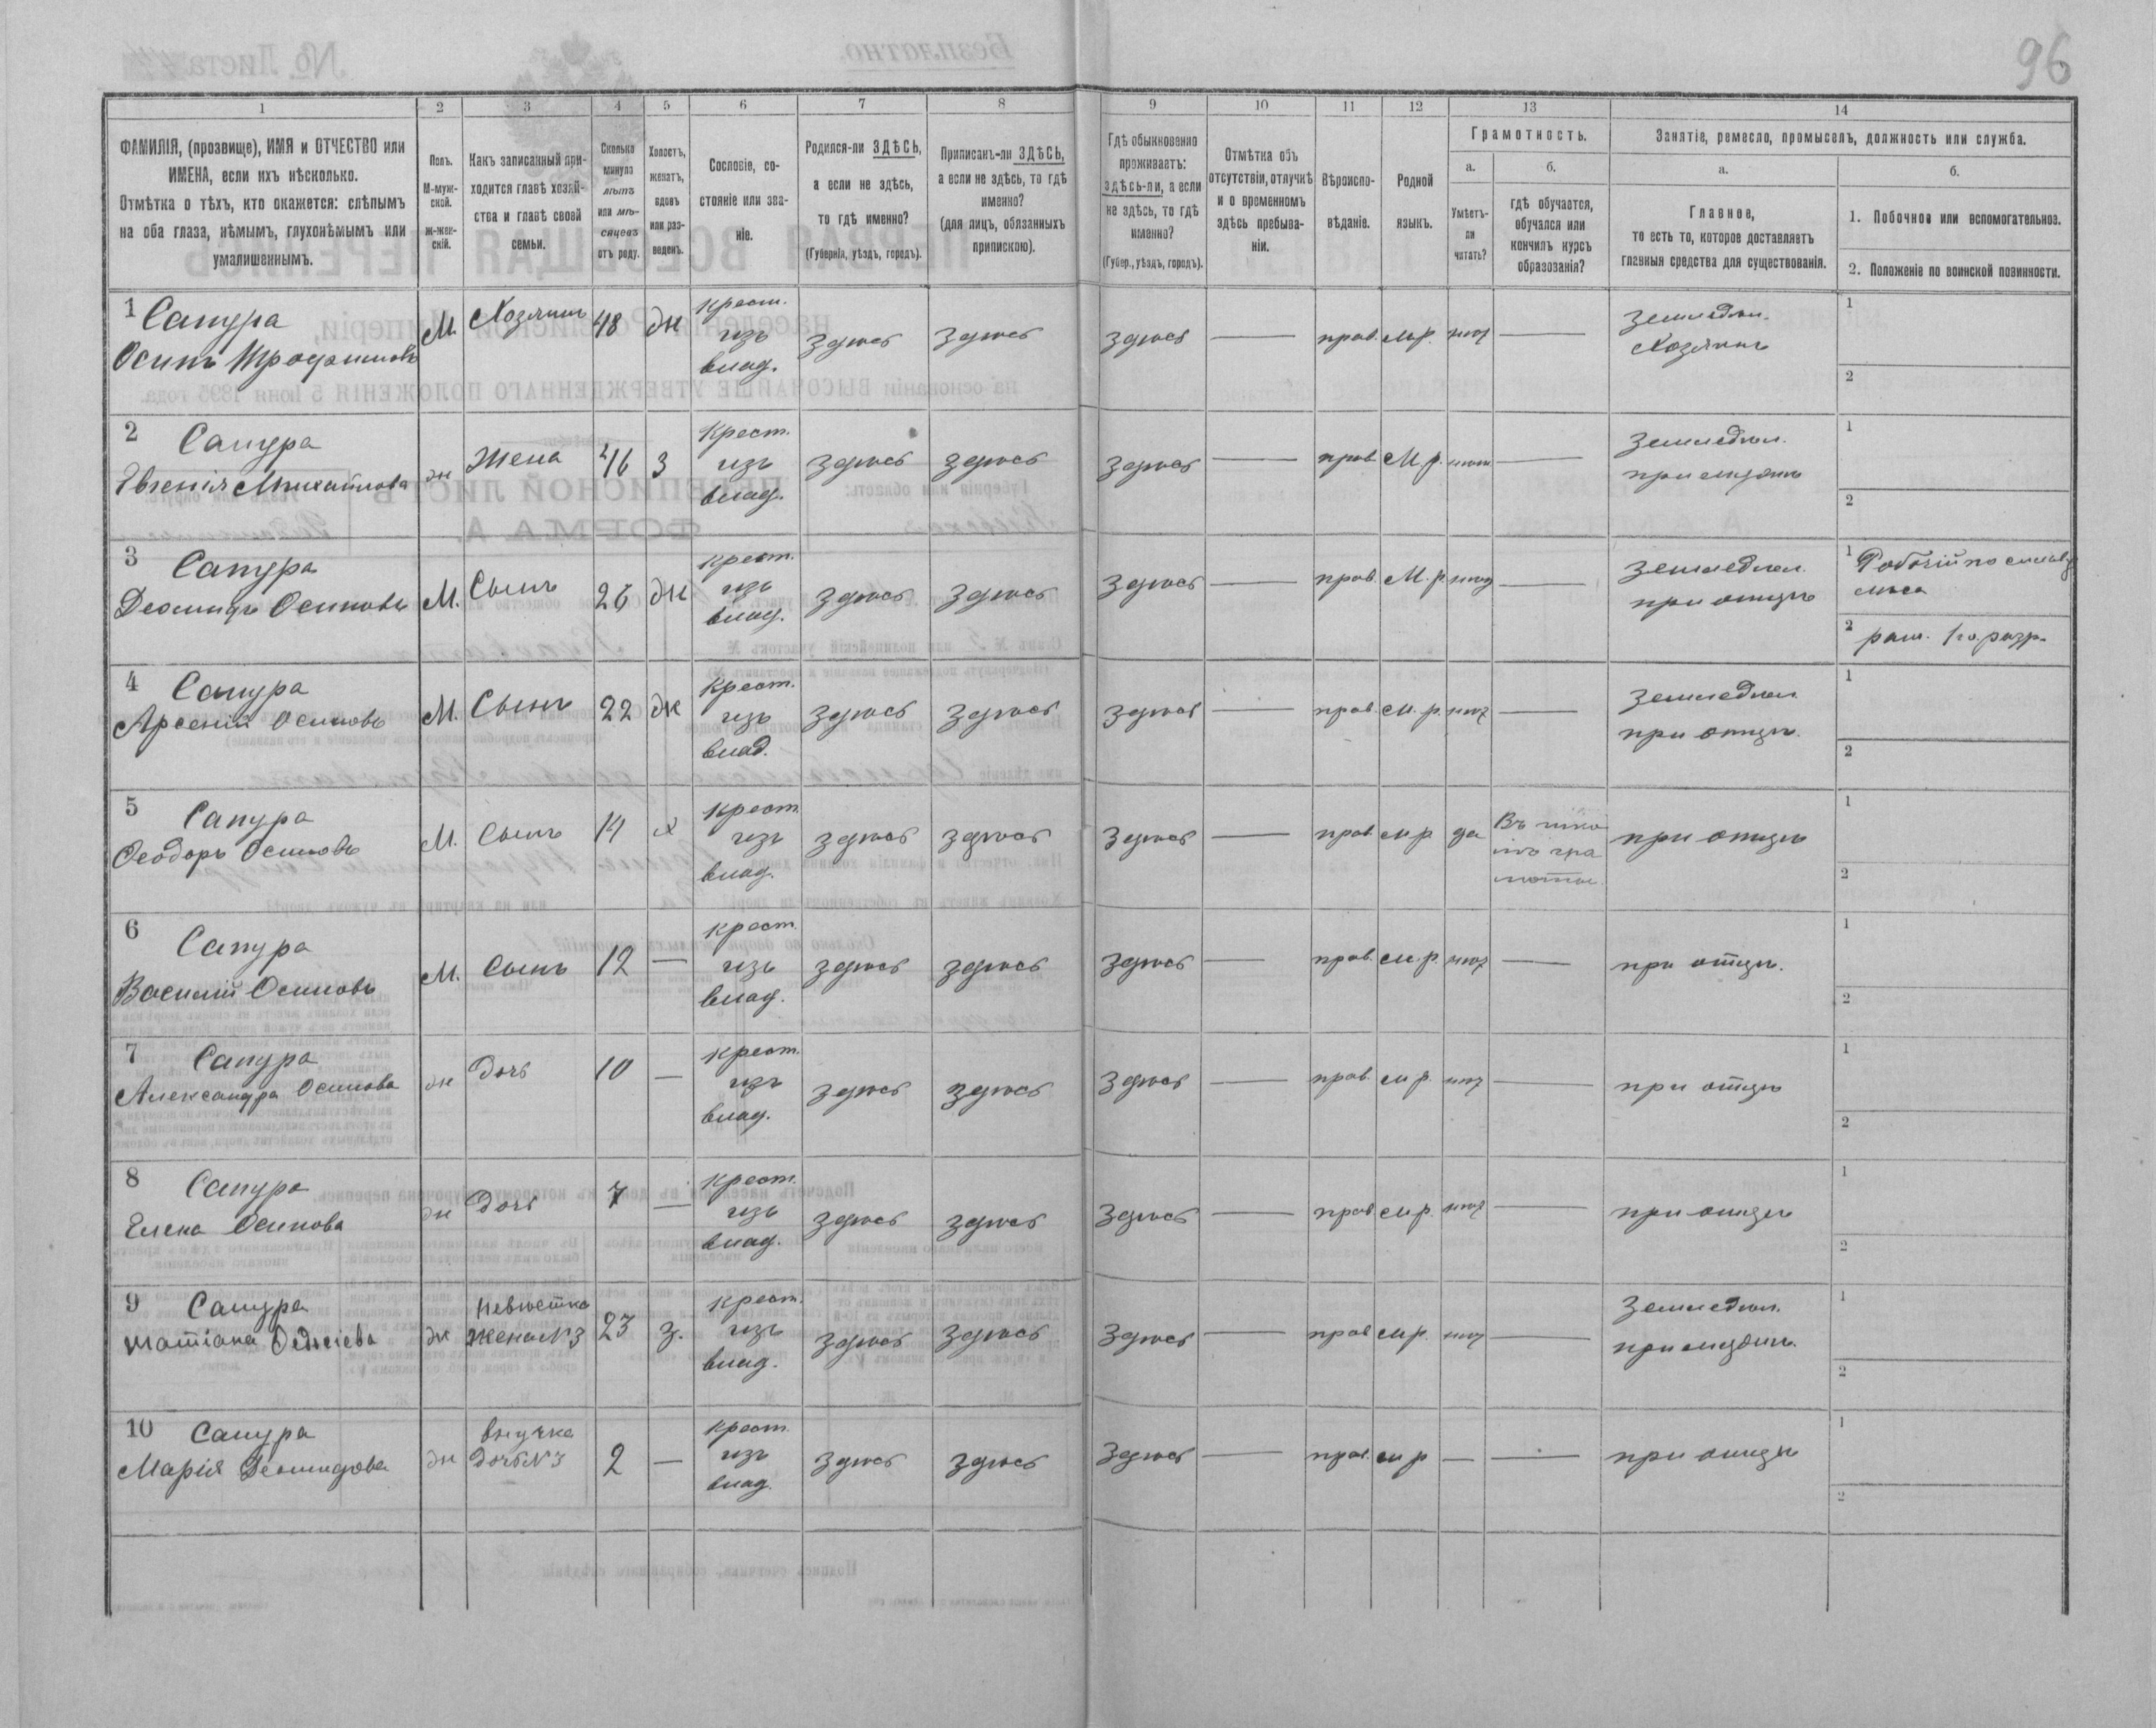 96
1
2
3
4
5
6
7
8
9
10
11
12
13
14
ФАМИЛІЯ, (прозвище), ИМЯ и ОТЧЕСТВО или
ИМЕНА, если ихъ нѣсколько.
Отмѣтка о тѣхъ, кто окажется: слѣпымъ
на оба глаза, нѣмымъ, глухонѣмымъ или
умалишеннымъ.
Полъ.
М-муж-
ской.
ж-жен-
скій.
Какъ записанный при-
ходится главѣ хозяй-
ства и главѣ своей
семьи.
Сколько
минуло
лѣтъ
или мѣ-
сяцевъ
отъ роду.
Холостъ,
женатъ,
вдовъ
или раз-
веденъ.
Сословіе, со-
стояніе или зва-
ніе.
Родился-ли ЗДѢСЬ,
а если не здѣсь,
то гдѣ именно?
(Губернія, уѣздъ, городъ).
Приписанъ-ли ЗДѢСЬ,
а если не здѣсь, то гдѣ
именно?
(для лицъ, обязанныхъ
припискою).
Гдѣ обыкновенно
проживаетъ:
здѣсь-ли, а если
не здѣсь, то гдѣ
именно?
(Губер., уѣздъ, городъ).
Отмѣтка объ
отсутствіи, отлучкѣ
и о временномъ
здѣсь пребыва-
ніи.
Вѣроиспо-
вѣданіе.
Родной
языкъ.
Грамотность.
а.
Умѣетъ-
ли
читать?
б.
гдѣ обучается,
обучался или
кончилъ курсъ
образованія?
Занятіе, ремесло, промыселъ, должность или служба.
а.
Главное,
то есть то, которое доставляетъ
главныя средства для существованія.
б.
1. Побочное или вспомогательное.
2. Положеніе по воинской повинности.
1 Сапура
Осипъ Трофимовъ
М. Хозяинъ 48 ж
крест.
изъ
влад.
здѣсь здѣсь здѣсь — прав. м.р. нѣт —
Земледѣл.
Хозяинъ
1
2
2 Сапура
Евгенія Михайлова
ж Жена 46 З
Крест.
изъ
влад.
здѣсь здѣсь здѣсь — прав М.р. нѣт —
Земледѣл.
при мужѣ
1
2
3 Сапура
Деомидъ Осиповъ
М. Сынъ 26 ж
крест.
изъ
влад.
здѣсь здѣсь здѣсь — прав. М.р нѣт —
Земледѣл.
при отцѣ
1 Рабочій по сплаву
лѣса
2 рат. 1го разр.
4 Сапура
Арсеній Осиповъ
М. Сынъ 22 ж
Крест.
изъ
влад.
здѣсь здѣсь здѣсь — прав. м.р. нѣт —
Земледѣл
при отцѣ.
1
2
5 Сапура
Ѳеодоръ Осиповъ
М. Сынъ 14 х
крест.
изъ
влад.
здѣсь здѣсь здѣсь — прав м р да
Въ шко
лѣ гра
моты.
при отцѣ
1
2
6 Сапура
Василій Осиповъ
М. Сынъ 12 —
крест.
изъ
влад.
здѣсь здѣсь здѣсь — прав. м.р. нѣт —
при отцѣ.
1
2
7 Сапура
Александра Осипова
ж Дочь 10 —
крест.
изъ
влад.
здѣсь здѣсь здѣсь — прав. м р. нѣт —
при отцѣ
1
2
8 Сапура
Елена Осипова
ж Дочь 7 —
крест.
изъ
влад.
здѣсь здѣсь здѣсь — прав м р. нѣт —
при отцѣ
1
2
9 Сапура
Татіана
ж
невѣстка
жена №3
23 з.
крест.
изъ
влад.
здѣсь здѣсь здѣсь — прав м р. нѣт —
Земледѣл.
при мужѣ.
1
2
10 Сапура
Марія Деомидова
ж
внучка
Дочь №3
2 —
крест.
изъ
влад.
здѣсь здѣсь здѣсь — прав. м р — —
при отцѣ
1
2